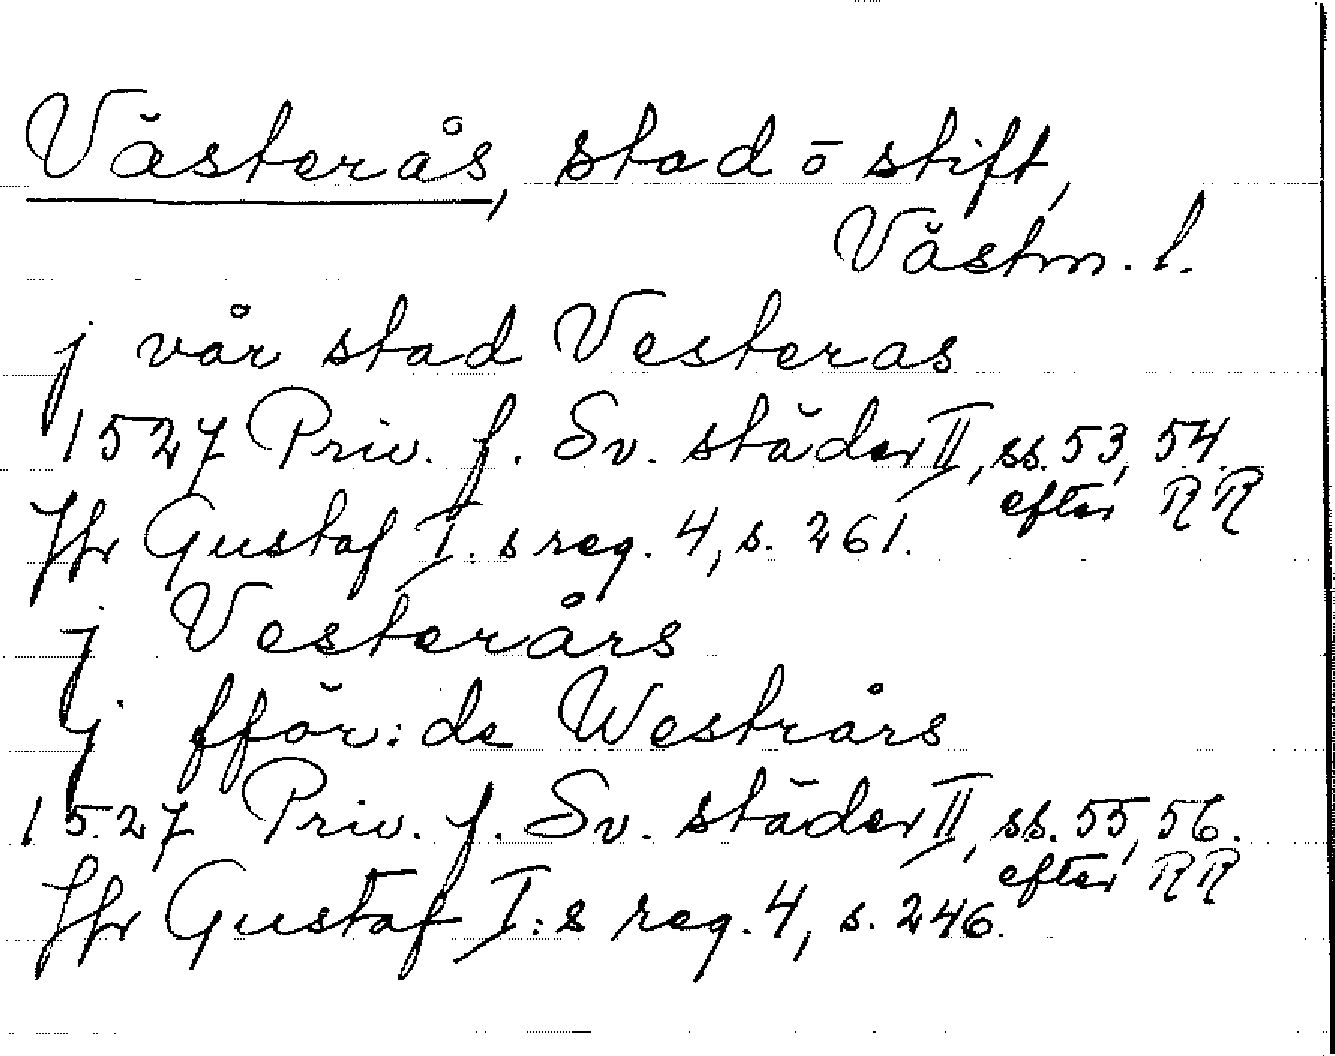 Västerås, stad o stift,
Västm. l.
j vår stad Vesteras
1527 Priv. f. Sv. städer II, ss. 53, 54.
efter RR
Jfr Gustaf I. s reg. 4, s. 261.
j Vesterårs
j fför: de Westrårs
1527 Priv. f. Sv. städer II, ss. 55, 56.
efter RR
Jfr Gustaf I: s reg. 4, s. 246.